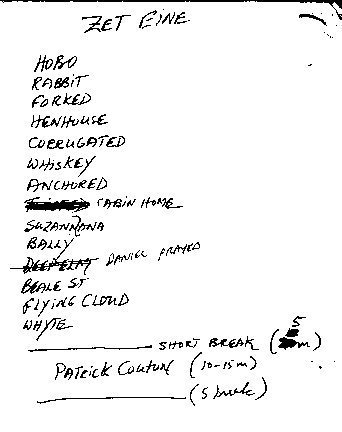 ZET EINE
HOBO
RABBIT
FORKED
HENHOUSE
CORRUGATED
WHISKEY
ANCHORED
CABIN HOME
SUZANNANA
BALLY
DEEP ELM DANIEL PRAYED
BEALE ST
FLYING CLOUD
WHYTE
SHORT BREAK (5 m)
PATRICK COUTON (10-15m)
(5 break)